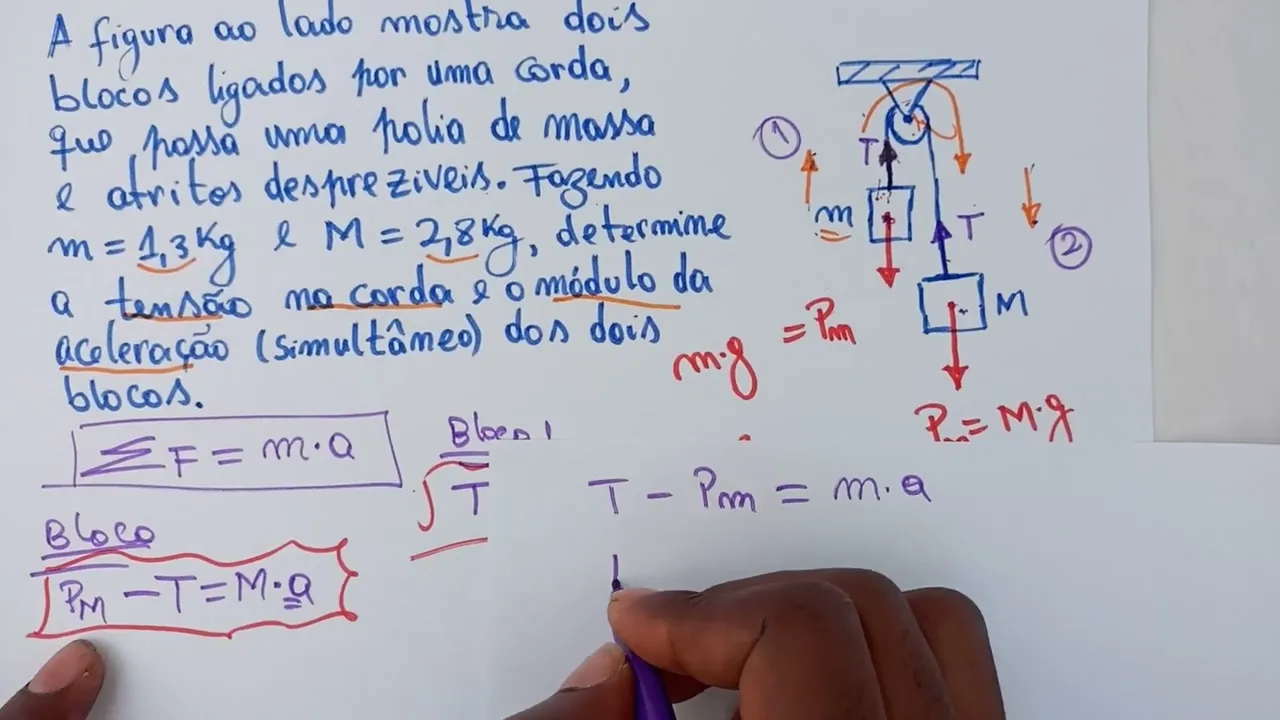 A figura ao lado mostra dois
blocos ligados por uma corda,
que passa uma polia de massa
e atritos desprezíveis. Fazendo
m = 1,3 Kg e M = 2,8 Kg, determine
a tensão na corda e o módulo da
aceleração (simultâneo) dos dois
blocos.
1
T
m
T
2
M
m·g = Pm
= M·g
ΣF = m·a
Bloco 1
T
Bloco
PM - T = M·a
T - Pm = m·a